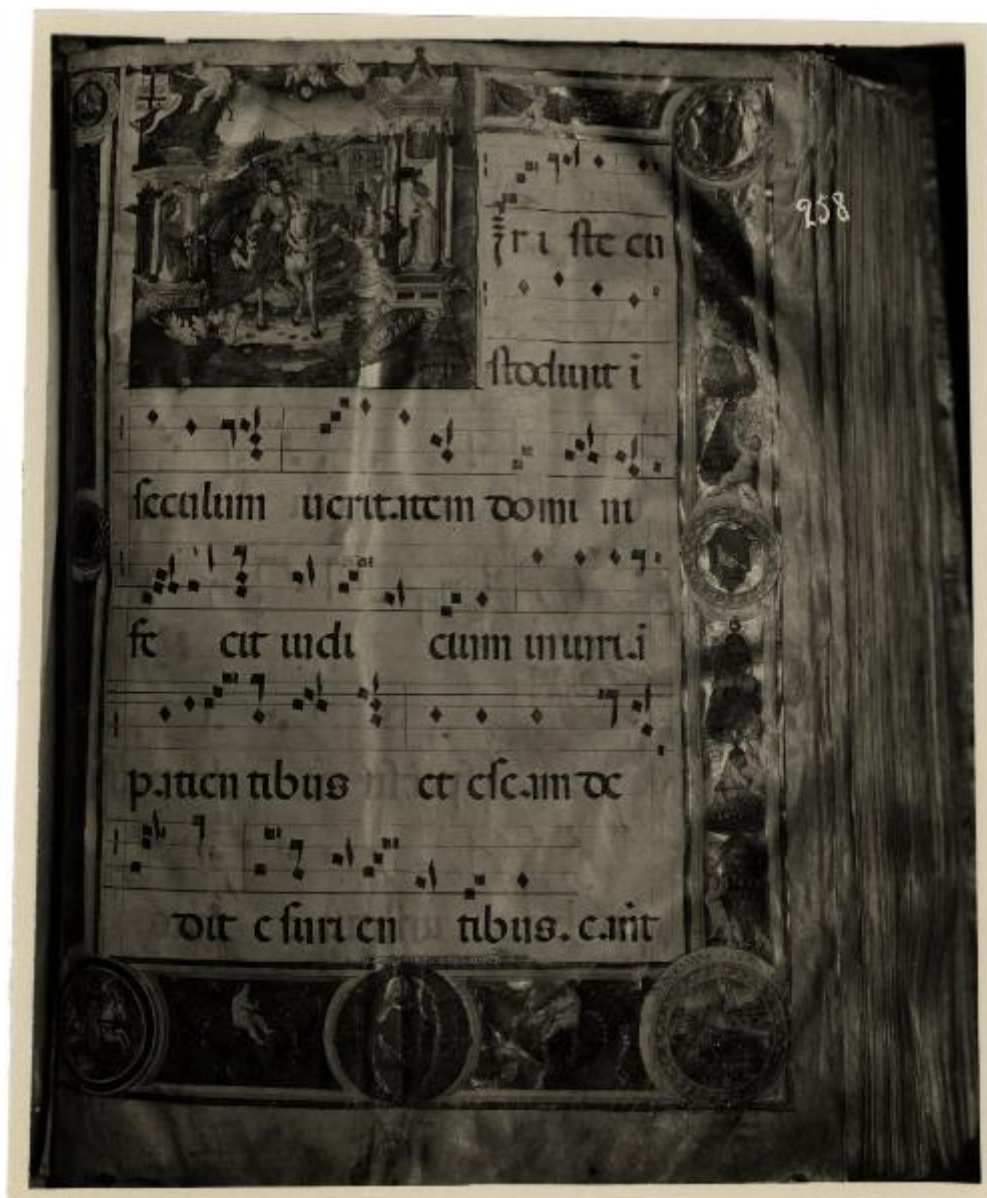 258
ri ste cu
stodiunt i
seculum ueritatem domi ni
fe cit iudi cium iniuri a
patien tibus et escam de
dit e suri en tibus. cant